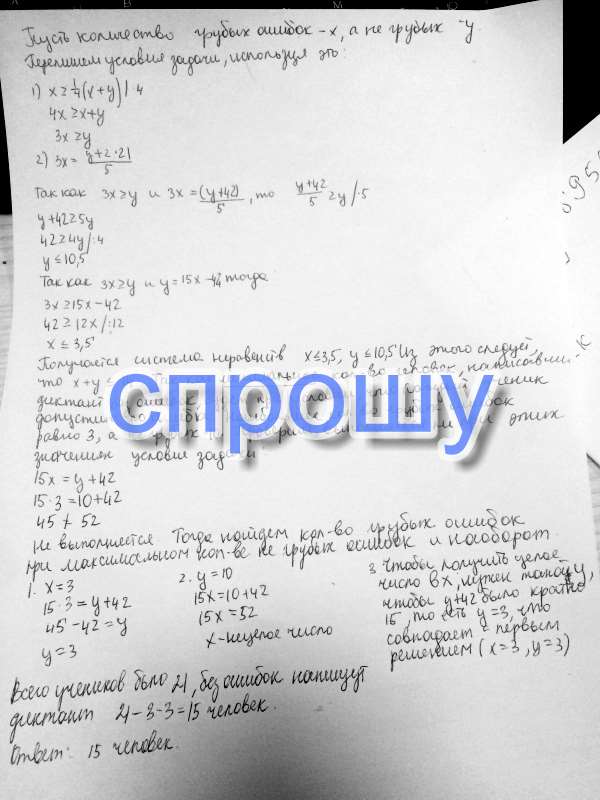 Пусть количество грубых ошибок - x, а не грубых - y.
Перепишем условия задачи, используя это:
1) x ≥ 1/4 (x+y) | · 4
4x ≥ x+y
3x ≥ y
2) 3x = y+2·21 / 5
Так как 3x ≥ y и 3x = (y+42) / 5, то y+42 / 5 ≥ y | · 5
y+42 ≥ 5y
42 ≥ 4y | : 4
y ≤ 10,5
Так как 3x ≥ y и y = 15x - 42 тогда
3x ≥ 15x - 42
42 ≥ 12x | : 12
x ≤ 3,5
Получается система неравенств x ≤ 3,5, y ≤ 10,5 Из этого следует,
что x+y ≤
диктант
допусти
равно 3, а этих
значениях условие задачи
15x = y + 42
15 · 3 = 10 + 42
45 ≠ 52
Не выполняется. Тогда найдем кол-во грубых ошибок
при максимальном кол-ве не грубых ошибок и наоборот.
1. x = 3
15 · 3 = y + 42
45 - 42 = y
y = 3
2. y = 10
15x = 10 + 42
15x = 52
x - нецелое число
3. Чтобы получить целое
число в x, нужен такой y,
чтобы y+42 было кратно
15, то есть y = 3, что
совпадает с первым
решением (x = 3, y = 3)
Всего учеников было 21, без ошибок напишут
диктант 21 - 3 - 3 = 15 человек.
Ответ: 15 человек.
спрошу